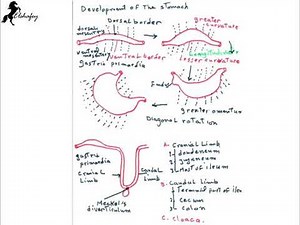 Development of The stomach
Dorsal border
greater
curvature
dorsal
mesentry
ventral
mesentry
ventral border
gastric primordia
Longitudinal
lesser curvature
greater omentum
Diagonal rotation
gastric
primordia
Cranial
Limb
Caudal
Limb
Meckel's
diverticulum
A. Cranial Limb
1- duodeneum
2- jejuneum
3- Most of ileum
B. Caudal Limb
1- Terminal part of ileu
2- Cecum
3- Colon
C. Cloaca.